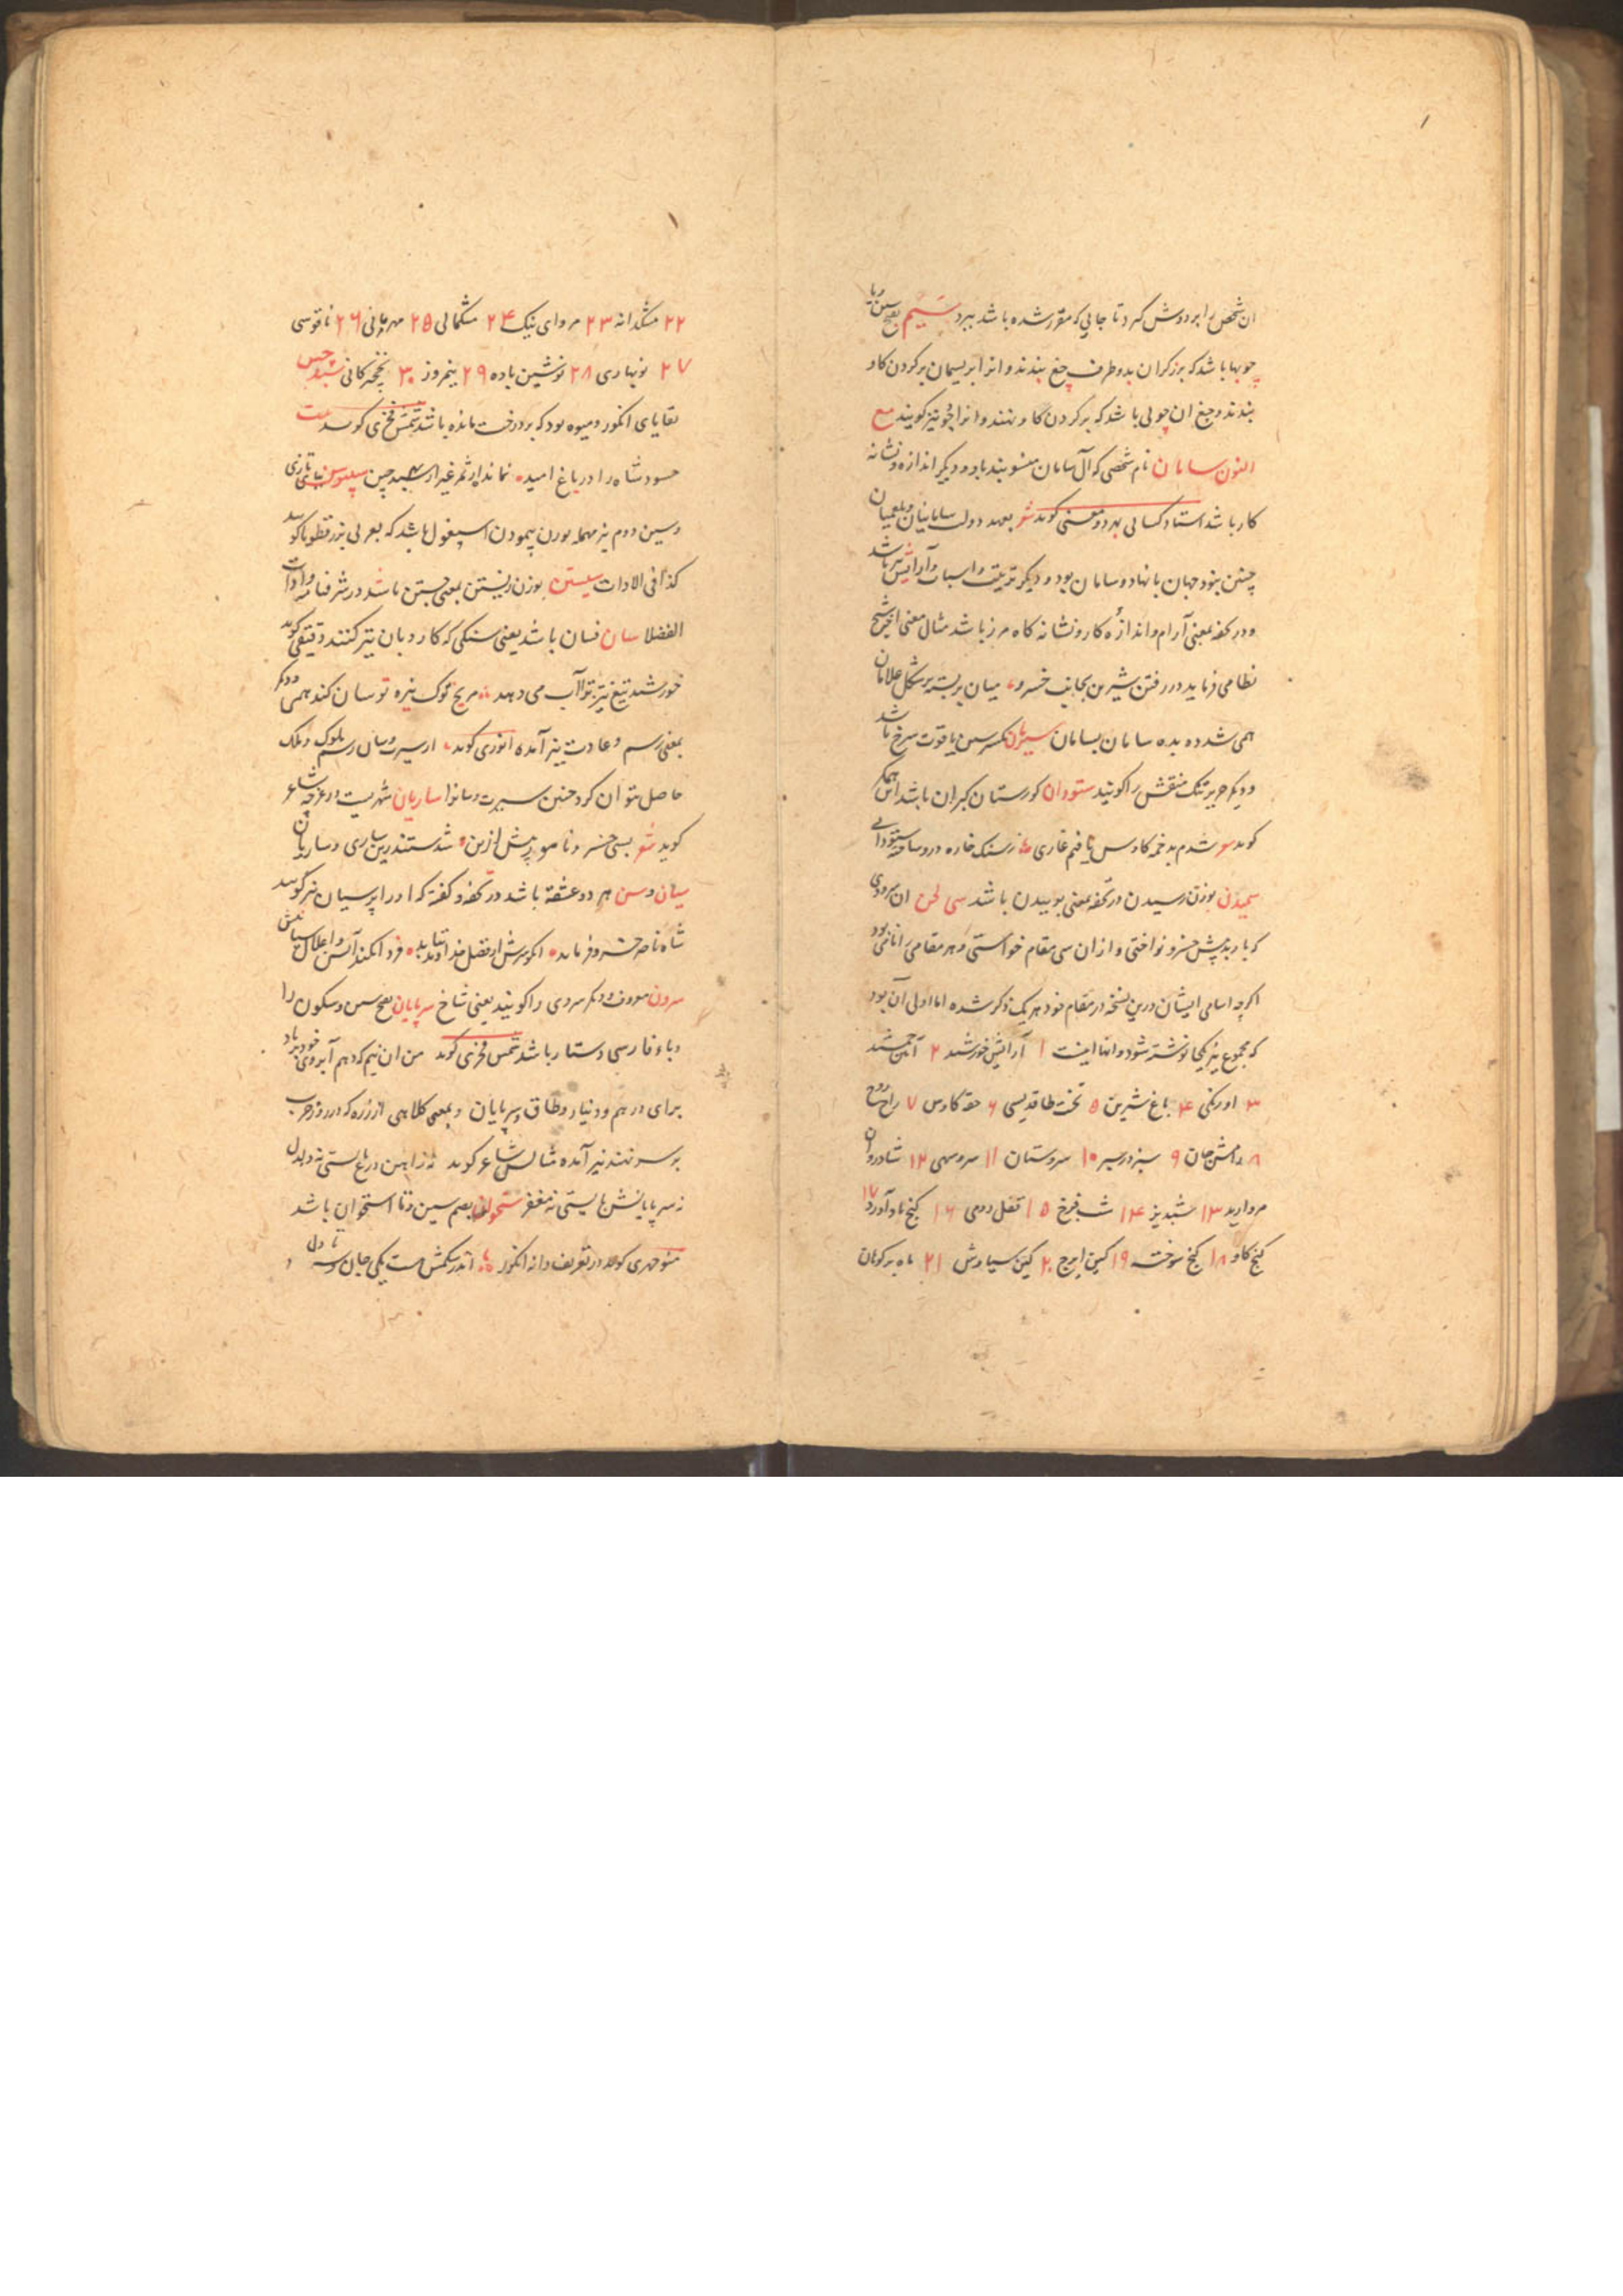 ان شخص را بر دوش گیرد تا جایی که مقرر شده باشد ببرد سیم بفتح سین و یا
چوبها باشد که برزگران بدو طرف چغ بندند و انرا بریسمان بر کردن کاو
بندند و چغ ان چوبی باشد که بر کردن کاو نهند و انرا جو نیز کویند مع
النون سامان نام شخصی که آل سامان منسوبند باو و دیگر اندازه و نشانه
کار باشد استاد کسایی بهر دو معنی کوید شعر بعهد دولت سامانیان و بلعمیان
چنین نبود جهان با نهاد و سامان بود و دیگر ترتیب و اسباب و آرایش نیز باشد
و در تحفه بمعنی آرام و اندازه کار و نشانه کاه مرز باشد مثال معنی اخیر شیخ
نظامی فرماید در رفتن شیرین بجانب خسرو میان بربسته بر شکل غلامان
همی شد ده بده سامان بسامان سیلان بکسر سین یاقوت سرخ باشد
و دیگر حریر تنک منقش را کویند ستودان کورستان کبران باشد
کوید شعر شدم بدخمه کاوس با فیم غازی ز سنک خاره درو ساخته ستودانی
سمیدن بوزن رسیدن در تحفه بمعنی بوییدن باشد سی لحن ان سرودی
که باربد پیش خسرو نواختی و از ان سی مقام خواستی و هر مقامی را نامی بود
اکرچه اسامی ایشان درین نسخه در مقام خود هر یک ذکر شده اما اولی آن بود
که مجموع نیز یکجا نوشته شود و انها اینست ۱ آرایش خورشید ۲ آیین جمشید
۳ اورنکی ۴ باغ شیرین ۵ تخت طاقدیسی ۶ حقه کاوس ۷ راح روح
۸ رامش جان ۹ سبز در سبز ۱۰ سروستان ۱۱ سرو سهی ۱۲ شادروان
مروارید ۱۳ شبدیز ۱۴ شب فرخ ۱۵ قفل رومی ۱۶ کنج بادآورد ۱۷
کنج کاو ۱۸ کنج سوخته ۱۹ کین ایرج ۲۰ کین سیاوش ۲۱ ماه بر کوهان
۲۲ مشکدانه ۲۳ مروای نیک ۲۴ مشکمالی ۲۵ مهربانی ۲۶ ناقوسی
۲۷ نوبهاری ۲۸ نوشین باده ۲۹ نیمروز ۳۰ نخچیرکانی سبدچین
بقایای انکور و میوه بود که بر درخت مانده باشد شمس فخری کوید بیت
حسود شاه را در باغ امید نماند از ثمر غیر از سبدچین سپیوس
و سین دوم نیز مهمله بوزن پیمودن اسپغول باشد که بعربی بزر قطونا کویند
کذا فی الادات سیستن بوزن زیستن بمعنی جستن باشد در شرفنامه و ادات
الفضلا سان فسان باشد یعنی سنکی که کارد بان تیز کنند دقیقی کوید
خورشید تیغ تیز ترا آب می دهد مریخ نوک نیزه تو سان کند همی و دیگر
بمعنی رسم و عادت نیز آمده انوری کوید از سیرت و سان رسم ملوک و ملک
حاصل نتوان کرد چنین سیرت و سانرا ساریان شهریست در غرچه شاعر
کوید شعر بسی خسرو نامور پیش ازین شدستند زین ساری و ساریان
سیان و سن هر دو عشقه باشد در تحفه و کفته که او را پرسیان نیز کویند
شاه ناصر خسرو فرماید
سرون معروف و دیگر سروی را کویند یعنی شاخ سرپایان بفتح سین و سکون را
و باء فارسی دستار باشد شمس فخری کوید من ان نیم که دهم آبروی خود بر باد
برای درهم و دینار و طاق و سرپایان و بمعنی کلاهی از زره که در روز حرب
بر سر نهند نیز آمده مثالش شاعر کوید نه ز آهن درع بایستی نه دلدل
نه سرپایانش بایستی نه مغفر ستخوان بضم سین و تا استخوان باشد
منوچهری کوید در تعریف دانه انکور اندر شکمش هست یکی جان و سه تا دل